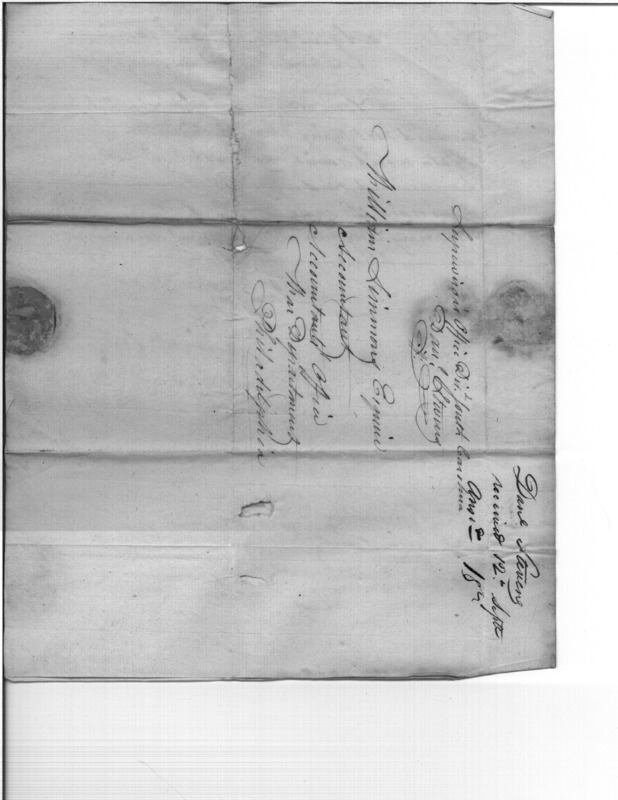 Supervisors Office Dist. South Carolina
Danl. Stevens
William Simmons Esquire
Accountant
Accountants Office
War Department
Philadelphia
Danl Stevens
received 12th Septr
Ansd 18th